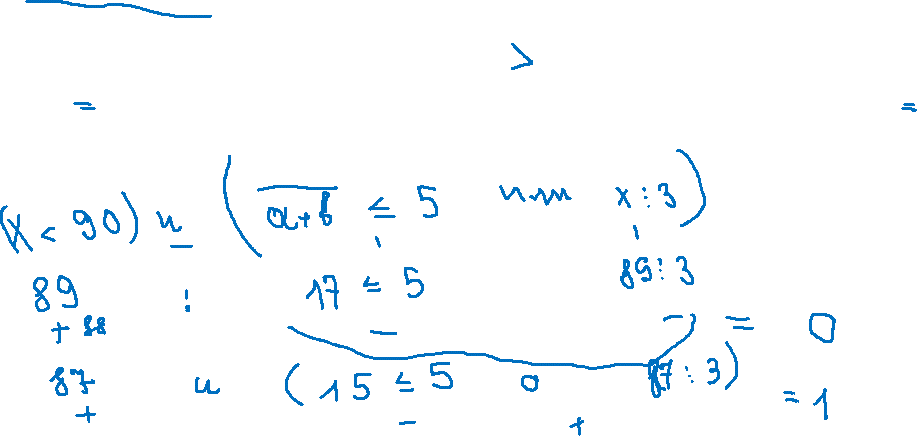 >
= =
(x < 90) и (a+b ≤ 5 или x ⋮ 3)
89 : 17 ≤ 5 89 ⋮ 3
+ 88 - - = 0
87 и (15 ≤ 5 0 87 ⋮ 3) = 1
+ - +